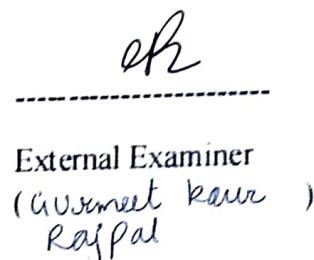 External Examiner
(Gurmeet Kaur )
Rajpal